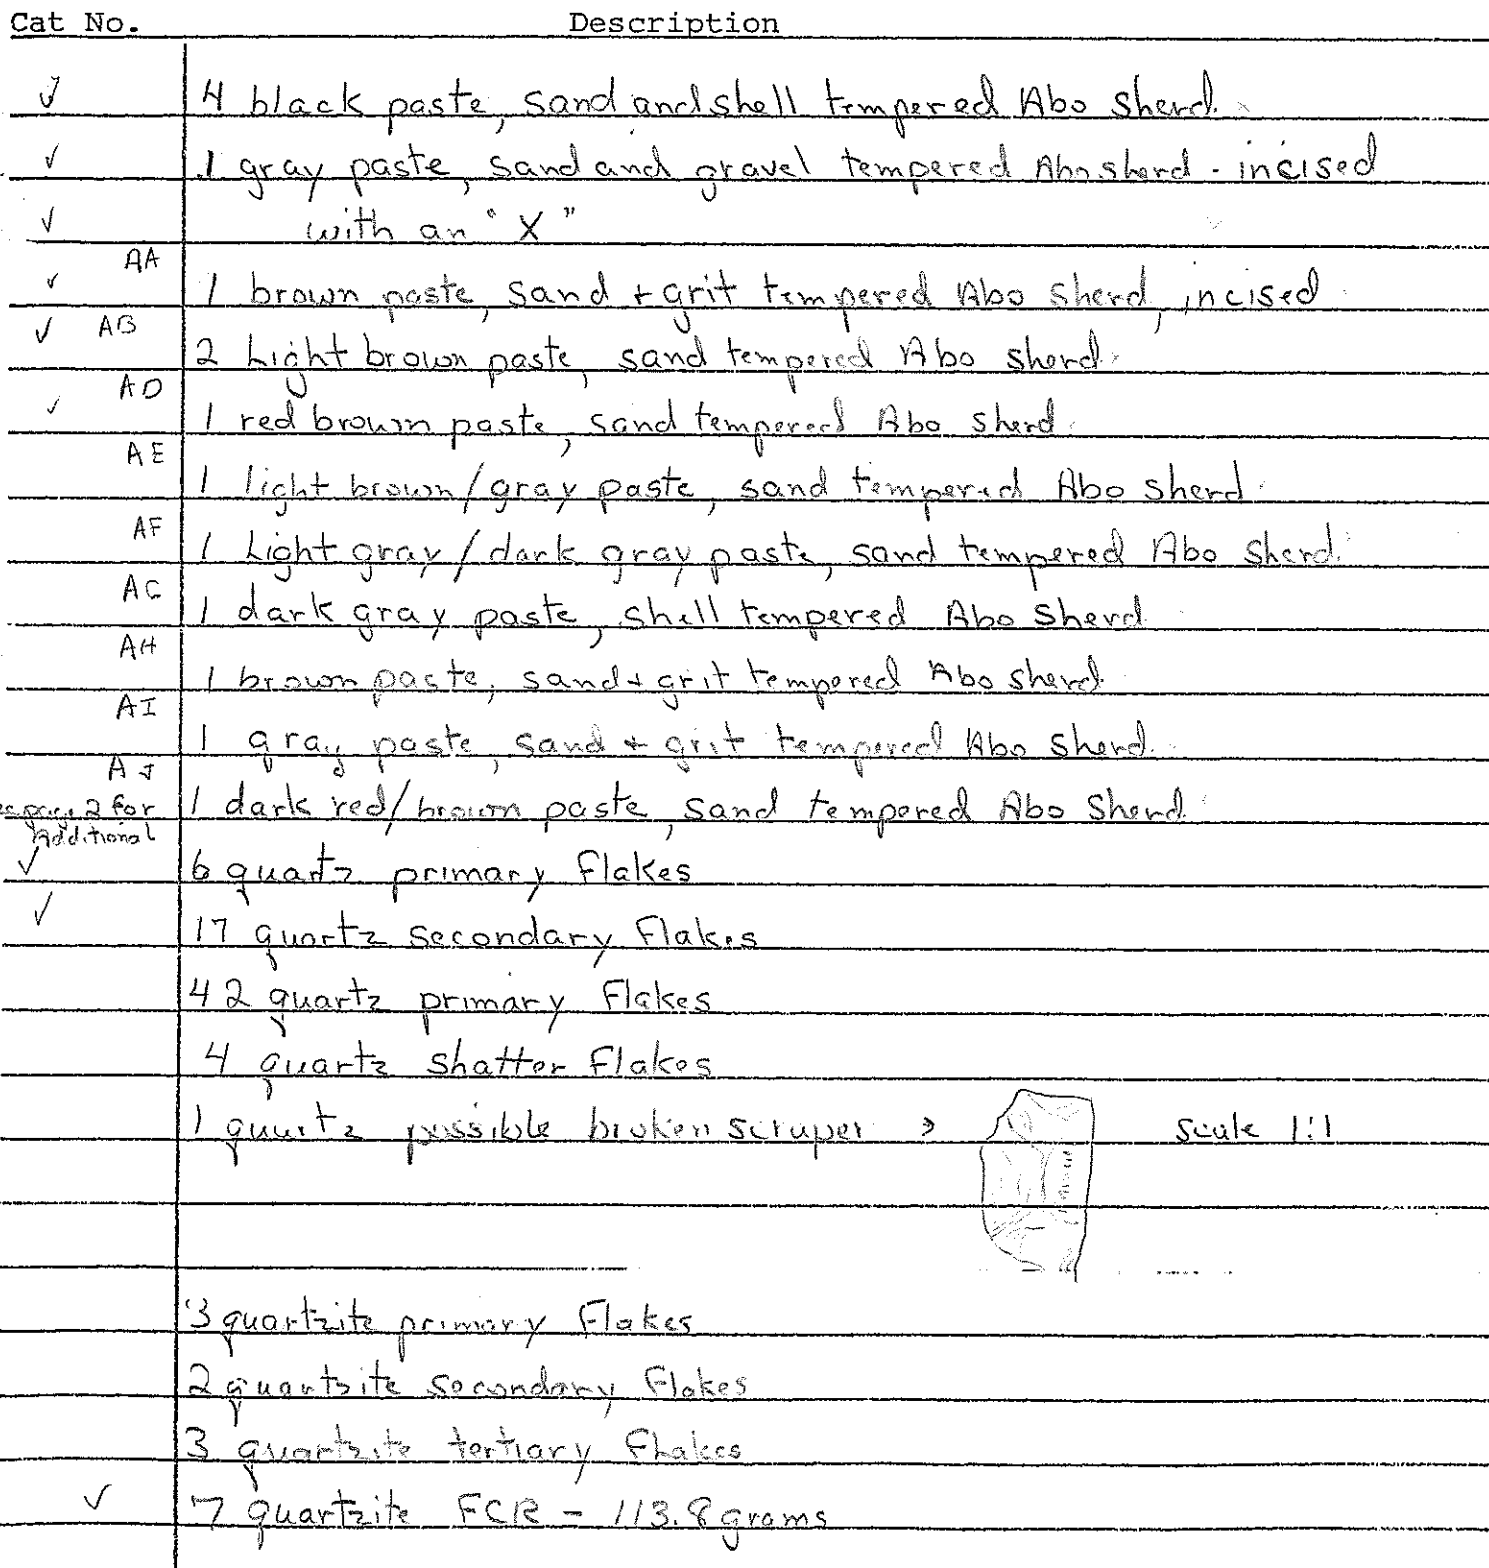 Cat No. Description
✓ 4 black paste, sand and shell tempered Abo sherd.
✓ 1 gray paste, sand and gravel tempered Abo sherd - incised
✓ with an "X"
AA
✓ 1 brown paste, sand + grit tempered Abo sherd, incised
✓ AB
2 Light brown paste, sand tempered Abo sherd.
AD
✓ 1 red brown paste, sand tempered Abo sherd.
AE
1 light brown/gray paste, sand tempered Abo sherd.
AF
1 Light gray/dark gray paste, sand tempered Abo sherd.
AG
1 dark gray paste, shell tempered Abo sherd
AH
1 brown paste, sand + grit tempered Abo sherd
AI
1 gray paste, sand + grit tempered Abo sherd.
AJ
page 2 for 1 dark red/brown paste, sand tempered Abo sherd.
Additional
✓ 6 quartz primary Flakes
✓ 17 quartz secondary Flakes
42 quartz primary Flakes
4 quartz shatter Flakes
1 quartz possible broken scraper > Scale 1:1
3 quartzite primary Flakes
2 quartzite secondary Flakes
3 quartzite tertiary Flakes
✓ 7 quartzite FCR - 113.8 grams